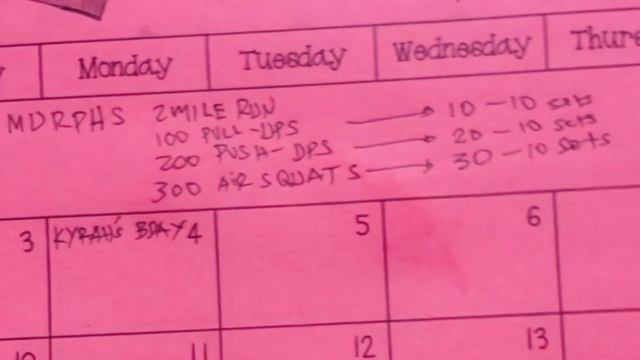 Monday Tuesday Wednesday Thurs
MDRPHS 2 MILE RUN
100 PULL-UPS → 10 - 10 sets
200 PUSH-UPS → 20 - 10 sets
300 AIR SQUATS → 30 - 10 sets
3 KYRAH'S BDAY 4 5 6
10 11 12 13